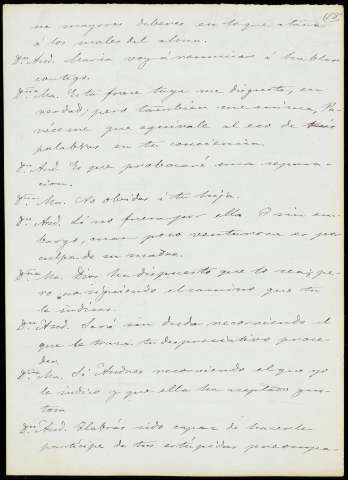 ne mayores deberes en lo que atañe
á los males del alma.
Dn. And. María voy á renunciar á hablar
contigo.
Dña. Ma. Esta frase tuya me disgusta, en
verdad; pero tambien me anima, pa-
réceme que equivale al eco de mis
palabras en tu conciencia.
Dn. And. Es que provocaré una separa-
cion.
Dña. Ma. No olvides á tu hija.
Dn. And. Si no fuera por ella! Y sin em-
bargo, cuan poco venturosa es por
culpa de su madre.
Dña. Ma. Dios ha dispuesto que lo sea; pe-
ro no siguiendo el camino que tu
le indicas.
Dn. And. Será sin duda recorriendo el
que le traza tu despreciativo proce-
der.
Dña. Ma. Si Andres recorriendo el que yo
le indico y que ella ha aceptado gus-
tosa.
Dn. And. Habrás sido capaz de hacerla
partícipe de tus estúpidas preocupa-